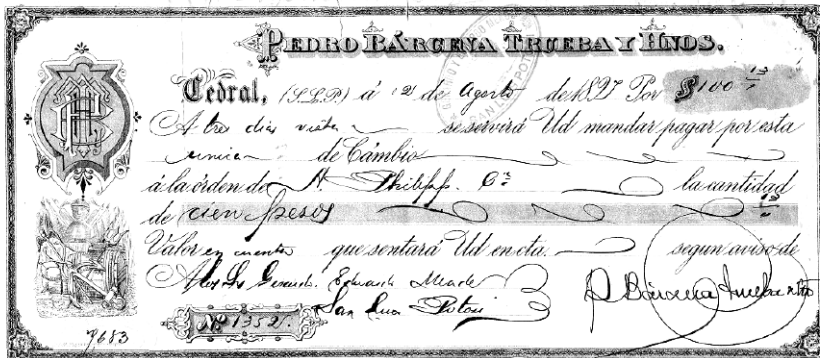 PEDRO BÁRCENA TRUEBA Y HNOS.
Cedral, (S.L.P.) á 12 de Agosto de 1897 Por $100
A tres dias vista se servirá Ud mandar pagar por esta
unica de Cámbio
á la órden de A. Philipp. Cª la cantidad
de cien pesos
Valor en cuenta que sentará Ud en cta. segun aviso de
A los Srs Gerardo. Eduardo Meade
San Luis Potosi
P. Bárcena Trueba y Hno
Nº 1352.
7683